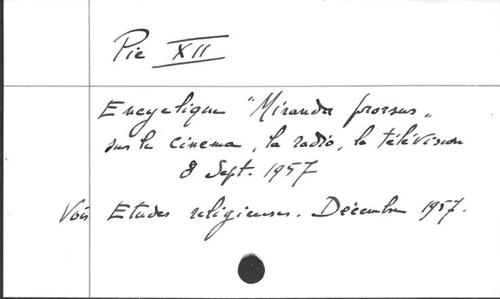 Pie XII
Encyclique "Miranda prorsus"
sur le cinema, la radio, la télévision
8 Sept. 1957
Voir Etudes religieuses. Décembre 1957.